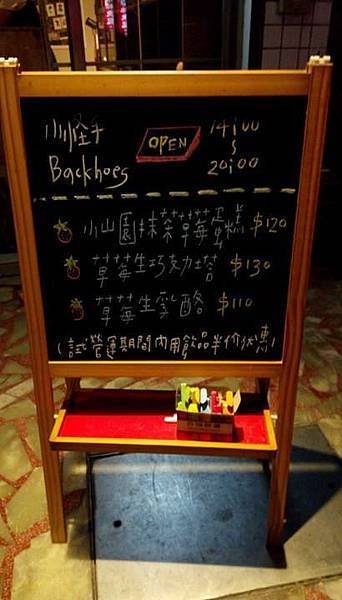 小怪手
OPEN
14:00
Backhoes
20:00
小山園抹茶草莓蛋糕 $120
草莓生巧克力塔 $130
草莓生乳酪 $110
(試營運期間內用飲品半价优惠)